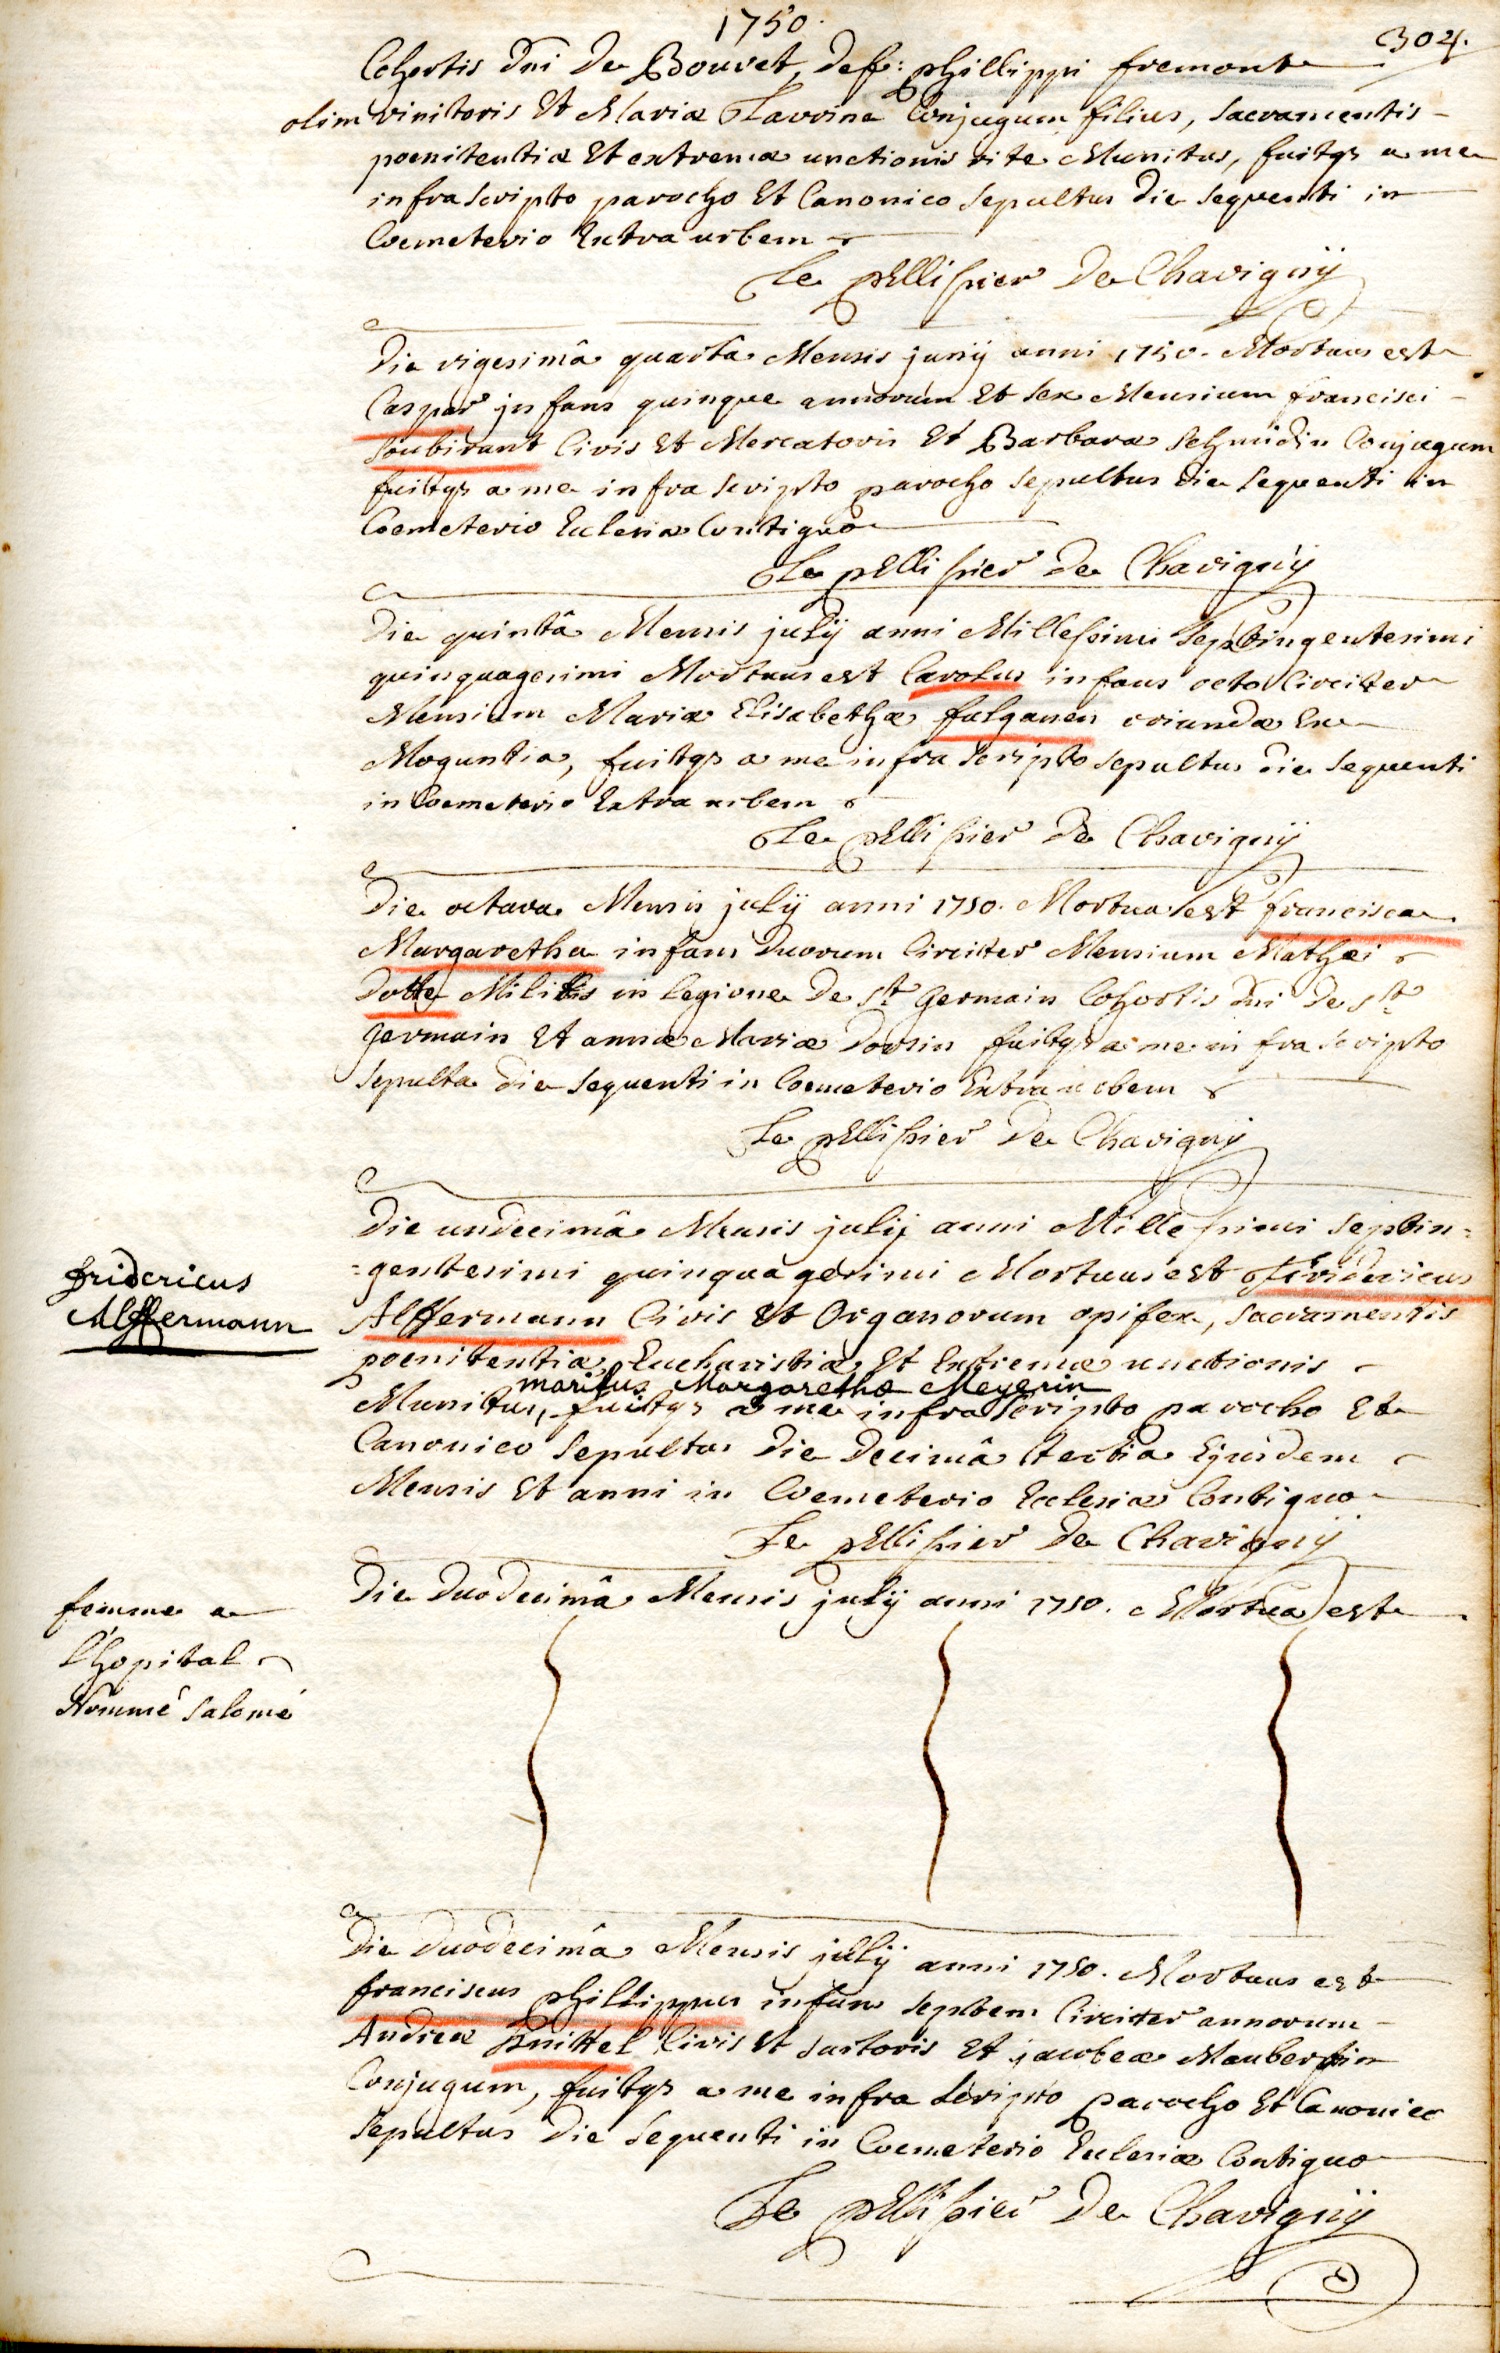 1750.
304.
Cohortis dni De Bouvet, def: phillippi fremont
olim vinitoris Et Mariæ Lavrine Conjugum filius, sacramentis
poenitentiæ Et extremæ unctionis rite Munitus, fuitqs a me
infrascripto parocho Et Canonico sepultus die sequenti in
Coemeterio Extra urbem
Le pellissier De Chavignÿ
Die vigesimâ quartâ Mensis junÿ anni 1750. Mortuus est
Caspar jnfans quinque annorum Et sex Mensium francisci
soubirant Civis Et Mercatoris Et Barbaræ schmidin Conjugum
fuitqs a me infra scripto parocho sepultus die sequenti in
Coemeterio Eclesiæ Contiguo
Le pellissier De Chavignÿ
Die quintâ Mensis julÿ anni Millessimi septingentesimi
quinquagesimi Mortuus est Carolus infans octo Circiter
Mensium Mariæ Elisabethæ falganen oriundæ Ex
Moguntia, fuitqs a me infra scripto sepultus die sequenti
in Coemeterio Extra urbem
Le pellissier De Chavignÿ
Die octava Mensis julÿ anni 1750. Mortua est francisca
Margaretha infans duorum Circitter Mensium Mathæi
dotte Militis in legione De st. Germain Cohortis dni De st.
germain Et annæ Mariæ dorsin fuitqs a me infra scripto
sepulta die sequenti in Coemeterio Extra urbem
Le pellissier De Chavignÿ
Die undecimâ Mensis julij anni Millessimi septin=
=gentesimi quinquagesimi Mortuus est fridericus
fridericus
Alffermann
Alffermann Civis Et Organorum opifex, sacramentis
poenitentiæ, Eucharistiæ Et Extremæ unctionis
maritus Margarethæ Meyerin
Munitus, fuitqs a me infrascripto parocho Et
Canonico sepultus die decimâ tertia Ejusdem
Mensis Et anni in Coemeterio Eclesiæ Contiguo
Le pellissier De Chavignÿ
Die duodecimâ Mensis julÿ anni 1750. Mortua est
femme a
l'hopital
Nommé salomé
Die duodecimâ Mensis julÿ anni 1750. Mortuus est
franciscus phillippus infans septem Circitter annorum
Andreæ Knittel Civis Et sartoris Et jacobeæ Mauberfin
Conjugum, fuitqs a me infra scripto parocho Et Canonico
sepultus die sequenti in Coemeterio Eclesiæ Contiguo
Le pellissier De Chavignÿ